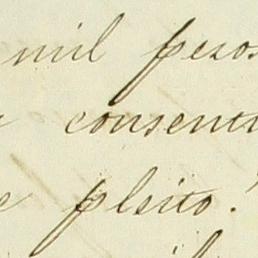 mil pesos
consenti
pleito.